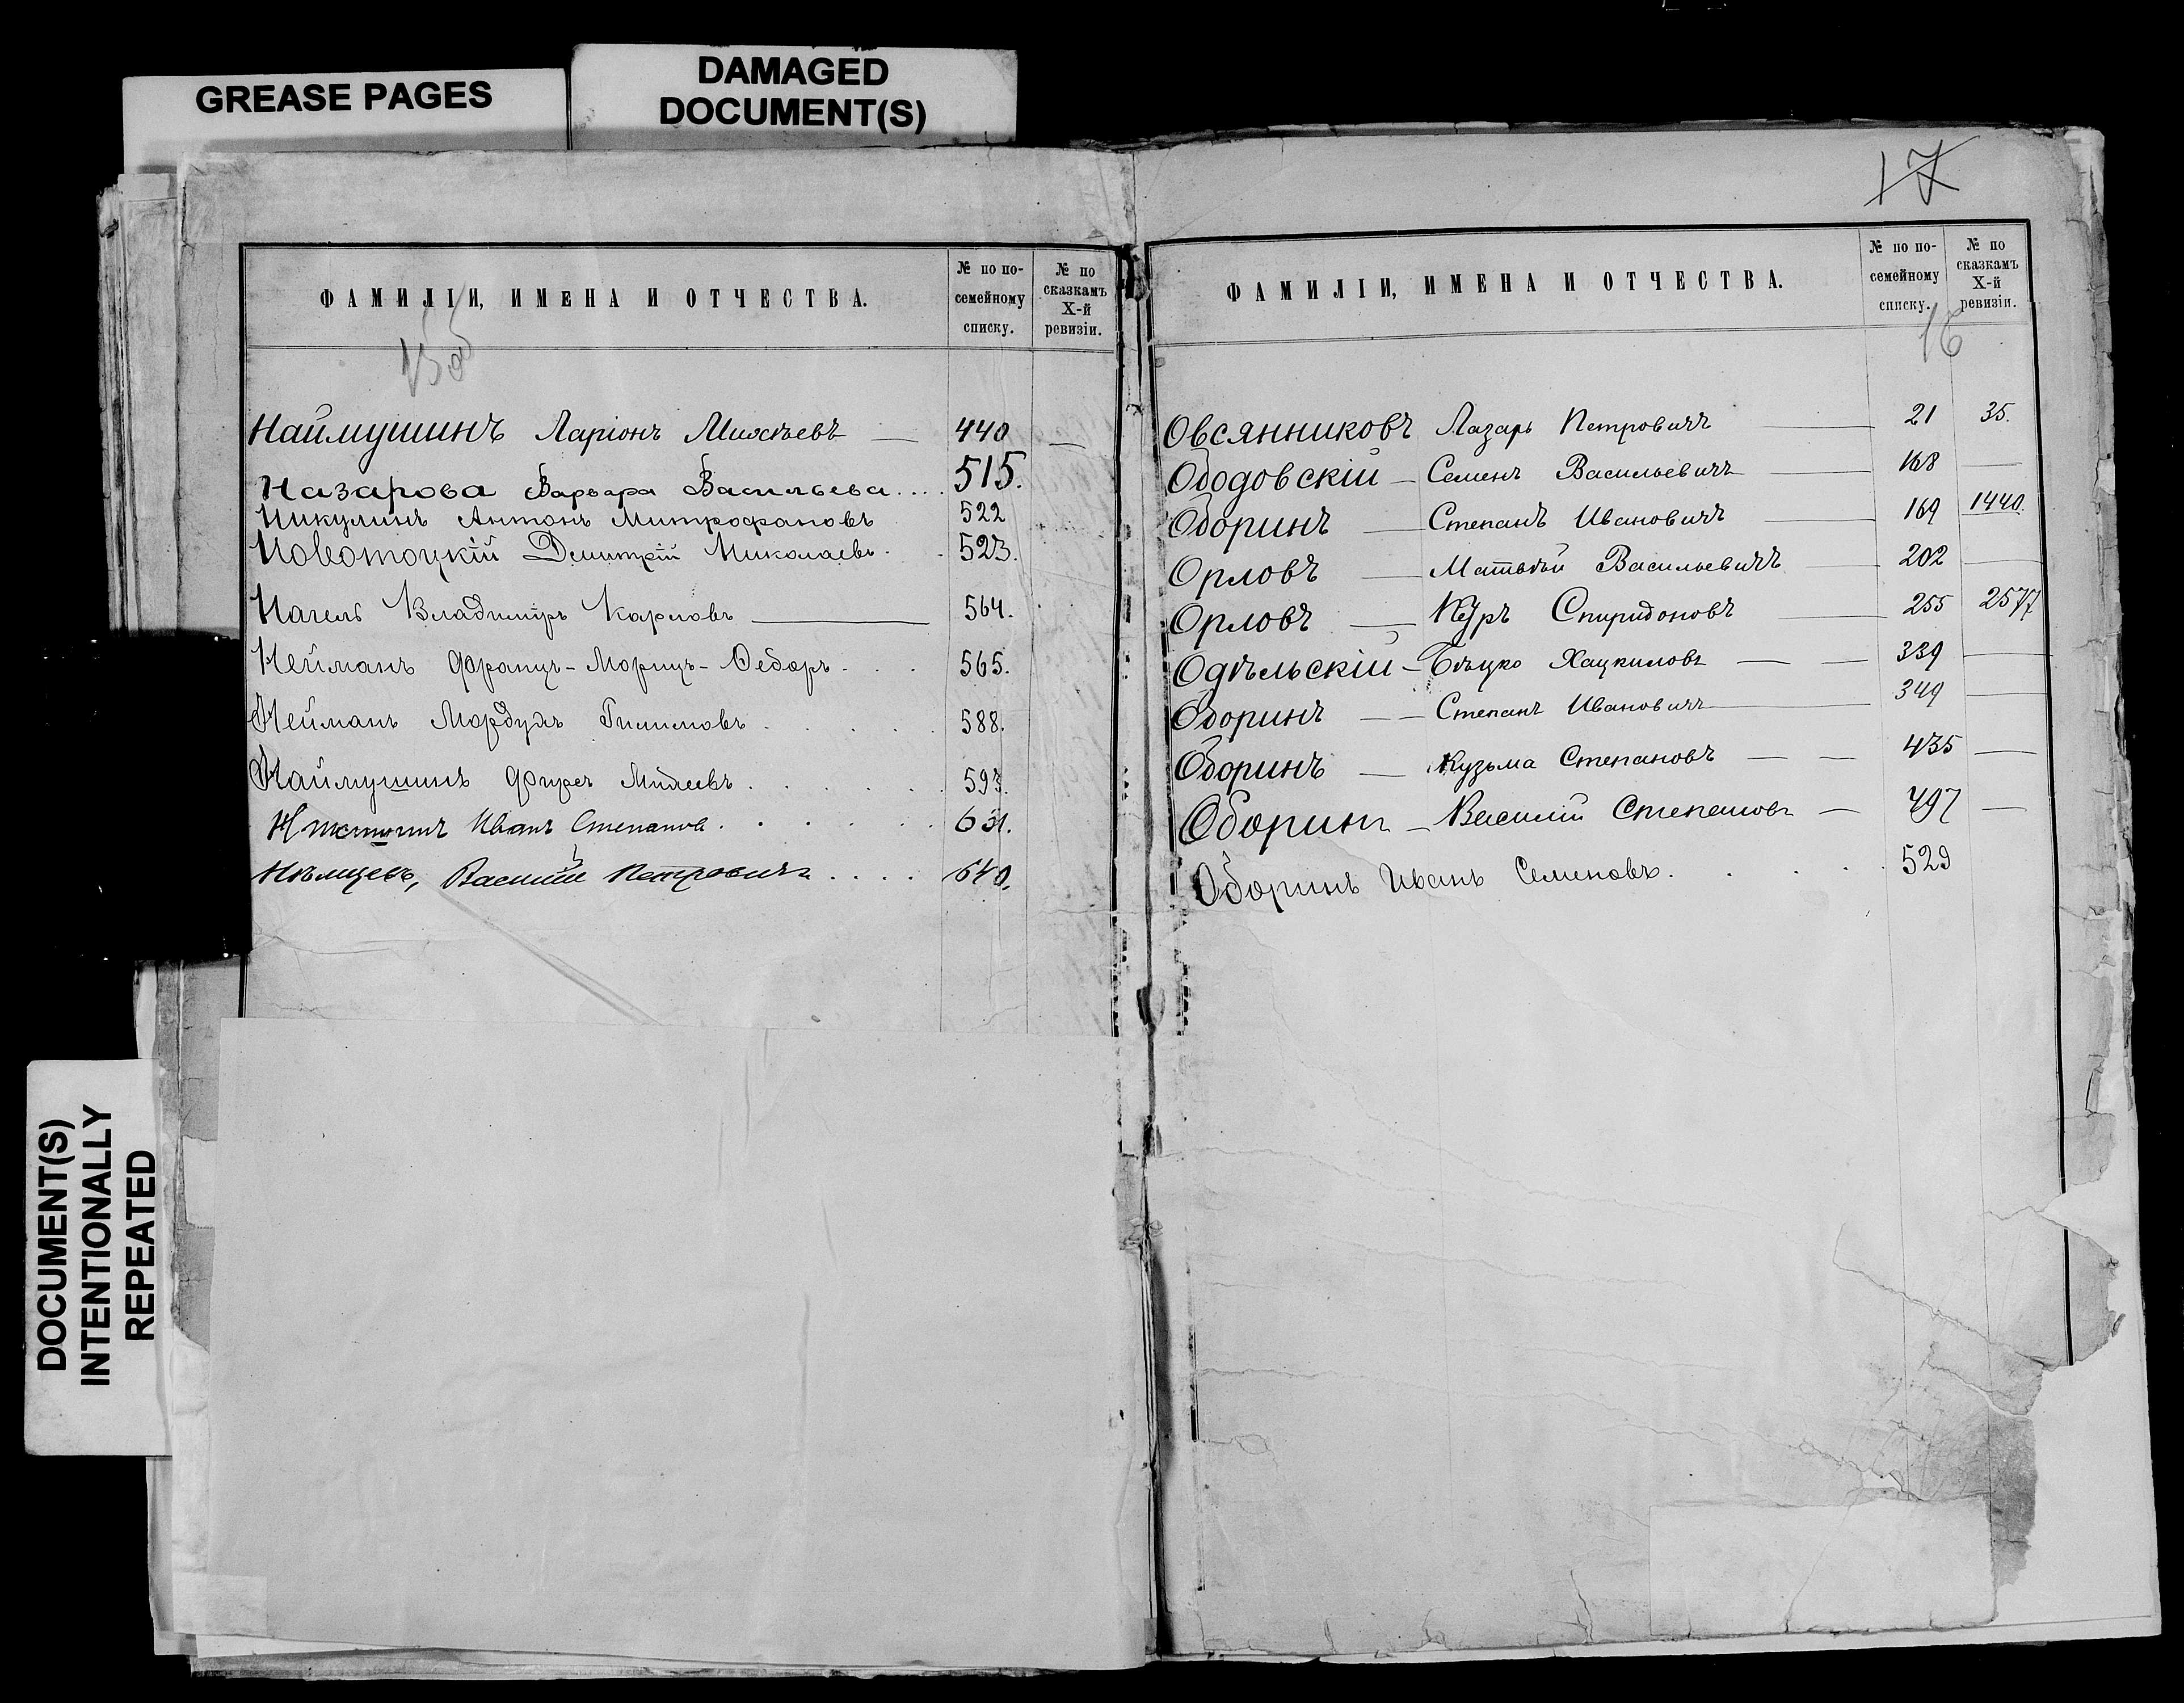 GREASE PAGES
DAMAGED
DOCUMENT(S)
DOCUMENT(S)
INTENTIONALLY
REPEATED
ФАМИЛІИ, ИМЕНА И ОТЧЕСТВА.
№ по по-
семейному
списку.
№ по
сказкамъ
X-й
ревизіи.
15об
Наймушинъ Ларіонъ — 440 —
Назарова Варвара Васильева.... 515.
Никулинъ Антонъ Митрофановъ 522
Новотоцкій Дмитрій Николаевъ. . 523.
Нагель Владиміръ Карловъ — 564.
Нейманъ Францъ-Морицъ-Ѳедоръ. . . 565.
Нейманъ Мордухъ . . . . . 588.
Наймушинъ . . . . . . 593.
Иванъ Степановъ. . . . . . 631.
Нѣмцевъ, Василій Петровичъ.... 640.
17
ФАМИЛІИ, ИМЕНА И ОТЧЕСТВА.
№ по по-
семейному
списку.
№ по
сказкамъ
X-й
ревизіи.
16
Овсянниковъ Лазарь Петровичъ — 21 35.
Ободовскій — Семенъ Васильевичъ — 168 —
Оборинъ — Степанъ Ивановичъ — 169 1440.
Орловъ — Матвѣй Васильевичъ — 202 —
Орловъ — Киръ Спиридоновъ — 255 2577
Одѣльскій — Хацкиловъ — — 339 —
Оборинъ — — Степанъ Ивановичъ — 349 —
Оборинъ — Кузьма Степановъ — — 435 —
Оборинъ — Василій Степановъ — 497 —
Оборинъ Иванъ Семеновъ. . . . . 529